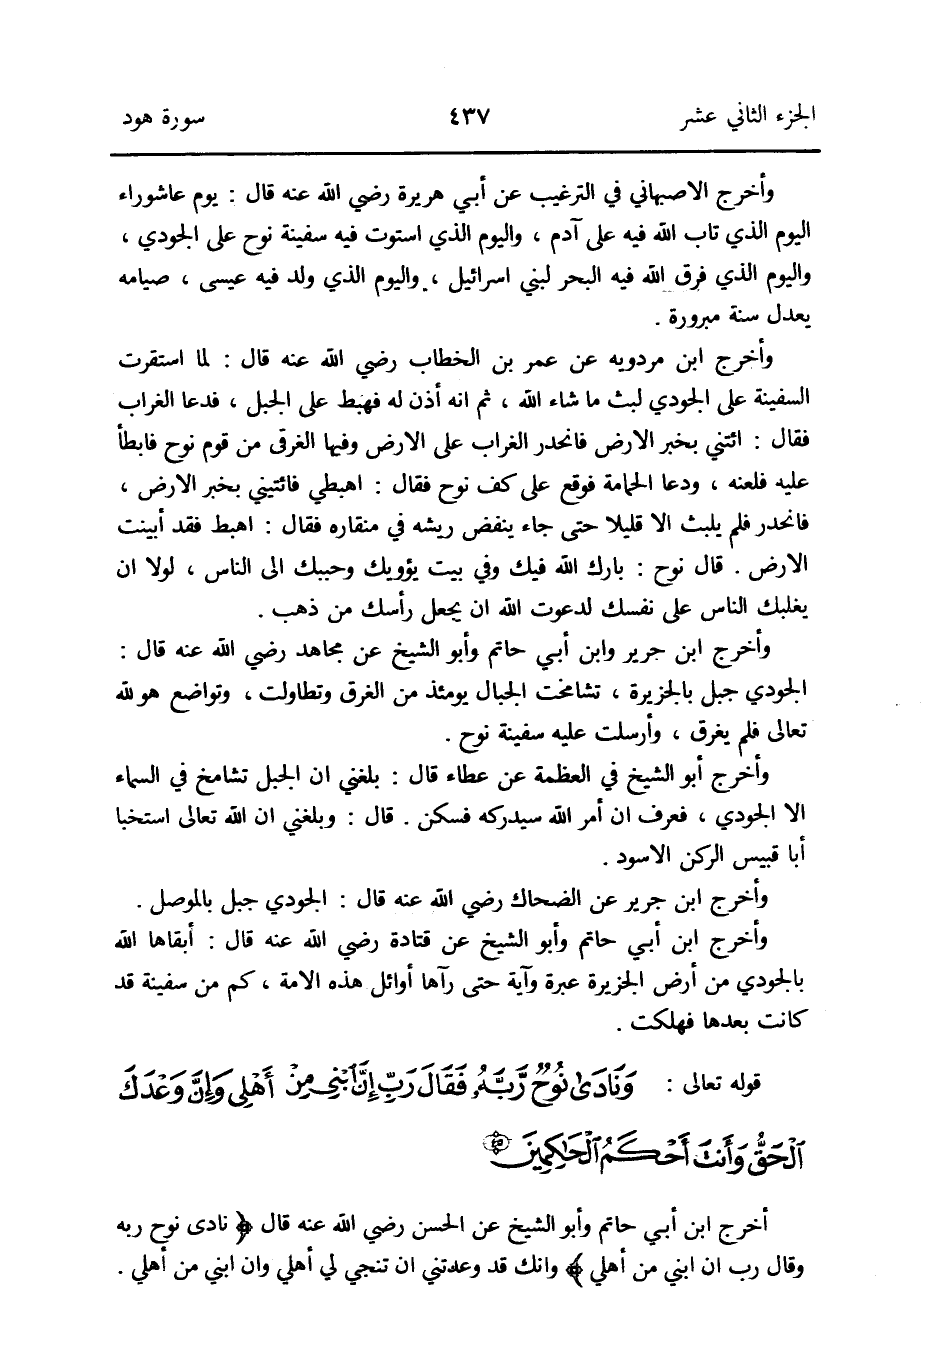 الجزء الثاني عشر ٤٣٧ سورة هود
وأخرج الاصبهاني في الترغيب عن أبي هريرة رضي الله عنه قال : يوم عاشوراء
اليوم الذي تاب الله فيه على آدم ، واليوم الذي استوت فيه سفينة نوح على الجودي ،
واليوم الذي فرق الله فيه البحر لبني اسرائيل ، واليوم الذي ولد فيه عيسى ، صيامه
يعدل سنة مبرورة .
وأخرج ابن مردويه عن عمر بن الخطاب رضي الله عنه قال : لما استقرت
السفينة على الجودي لبث ما شاء الله ، ثم انه أذن له فهبط على الجبل ، فدعا الغراب
فقال : ائتني بخبر الارض فانحدر الغراب على الارض وفيها الغرقى من قوم نوح فابطأ
عليه فلعنه ، ودعا الحمامة فوقع على كف نوح فقال : اهبطي فائتيني بخبر الارض ،
فانحدر فلم يلبث الا قليلا حتى جاء ينفض ريشه في منقاره فقال : اهبط فقد أبينت
الارض . قال نوح : بارك الله فيك وفي بيت يؤويك وحببك الى الناس ، لولا ان
يغلبك الناس على نفسك لدعوت الله ان يجعل رأسك من ذهب .
وأخرج ابن جرير وابن أبي حاتم وأبو الشيخ عن مجاهد رضي الله عنه قال :
الجودي جبل بالجزيرة ، تشامخت الجبال يومئذ من الغرق وتطاولت ، وتواضع هو لله
تعالى فلم يغرق ، وأرسلت عليه سفينة نوح .
وأخرج أبو الشيخ في العظمة عن عطاء قال : بلغني ان الجبل تشامخ في السماء
الا الجودي ، فعرف ان أمر الله سيدركه فسكن . قال : وبلغني ان الله تعالى استخبا
أبا قبيس الركن الاسود .
وأخرج ابن جرير عن الضحاك رضي الله عنه قال : الجودي جبل بالموصل .
وأخرج ابن أبي حاتم وأبو الشيخ عن قتادة رضي الله عنه قال : أبقاها الله
بالجودي من أرض الجزيرة عبرة وآية حتى رآها أوائل هذه الامة ، كم من سفينة قد
كانت بعدها فهلكت .
قوله تعالى : وَنَادَىٰ نُوحٌ رَّبَّهُۥ فَقَالَ رَبِّ إِنَّ ٱبْنِى مِنْ أَهْلِى وَإِنَّ وَعْدَكَ
ٱلْحَقُّ وَأَنتَ أَحْكَمُ ٱلْحَاكِمِينَ ۝٤٥
أخرج ابن أبي حاتم وأبو الشيخ عن الحسن رضي الله عنه قال ﴿ نادى نوح ربه
وقال رب ان ابني من أهلي ﴾ وانك قد وعدتني ان تنجي لي أهلي وان ابني من أهلي .